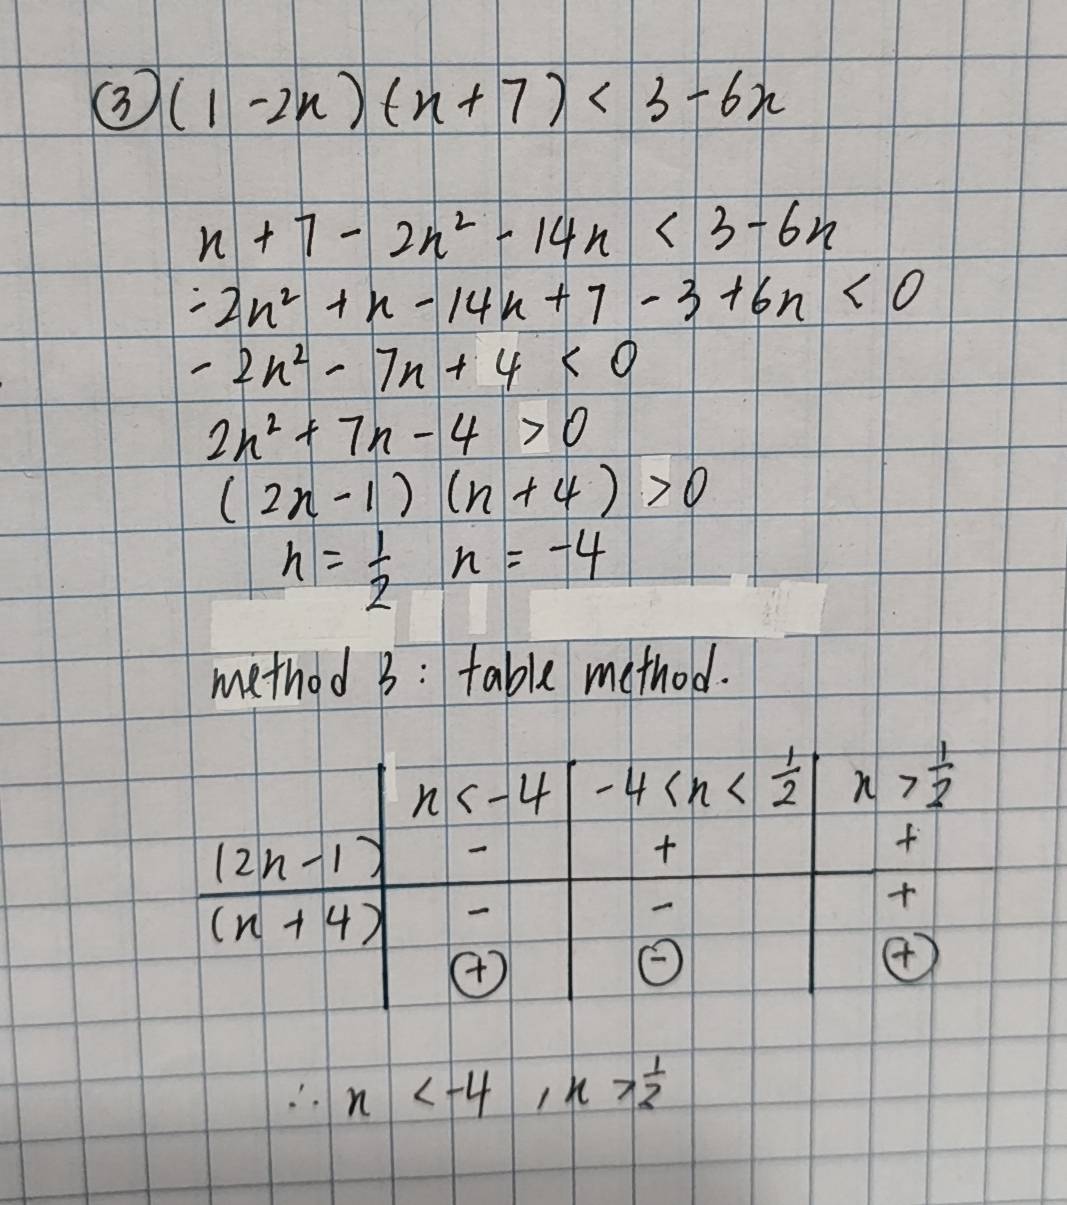 ③ (1-2x)(x+7) < 3-6x
x + 7 - 2x² - 14x < 3-6x
-2x² + x - 14x + 7 - 3 + 6x < 0
-2x² - 7x + 4 < 0
2x² + 7x - 4 > 0
(2x-1) (x+4) > 0
x = 1/2 x = -4
method 3 : table method.
x < -4 -4 < x < 1/2 x > 1/2
(2x-1) - + +
(x+4) - - +
+ - +
∴ x < -4 , x > 1/2